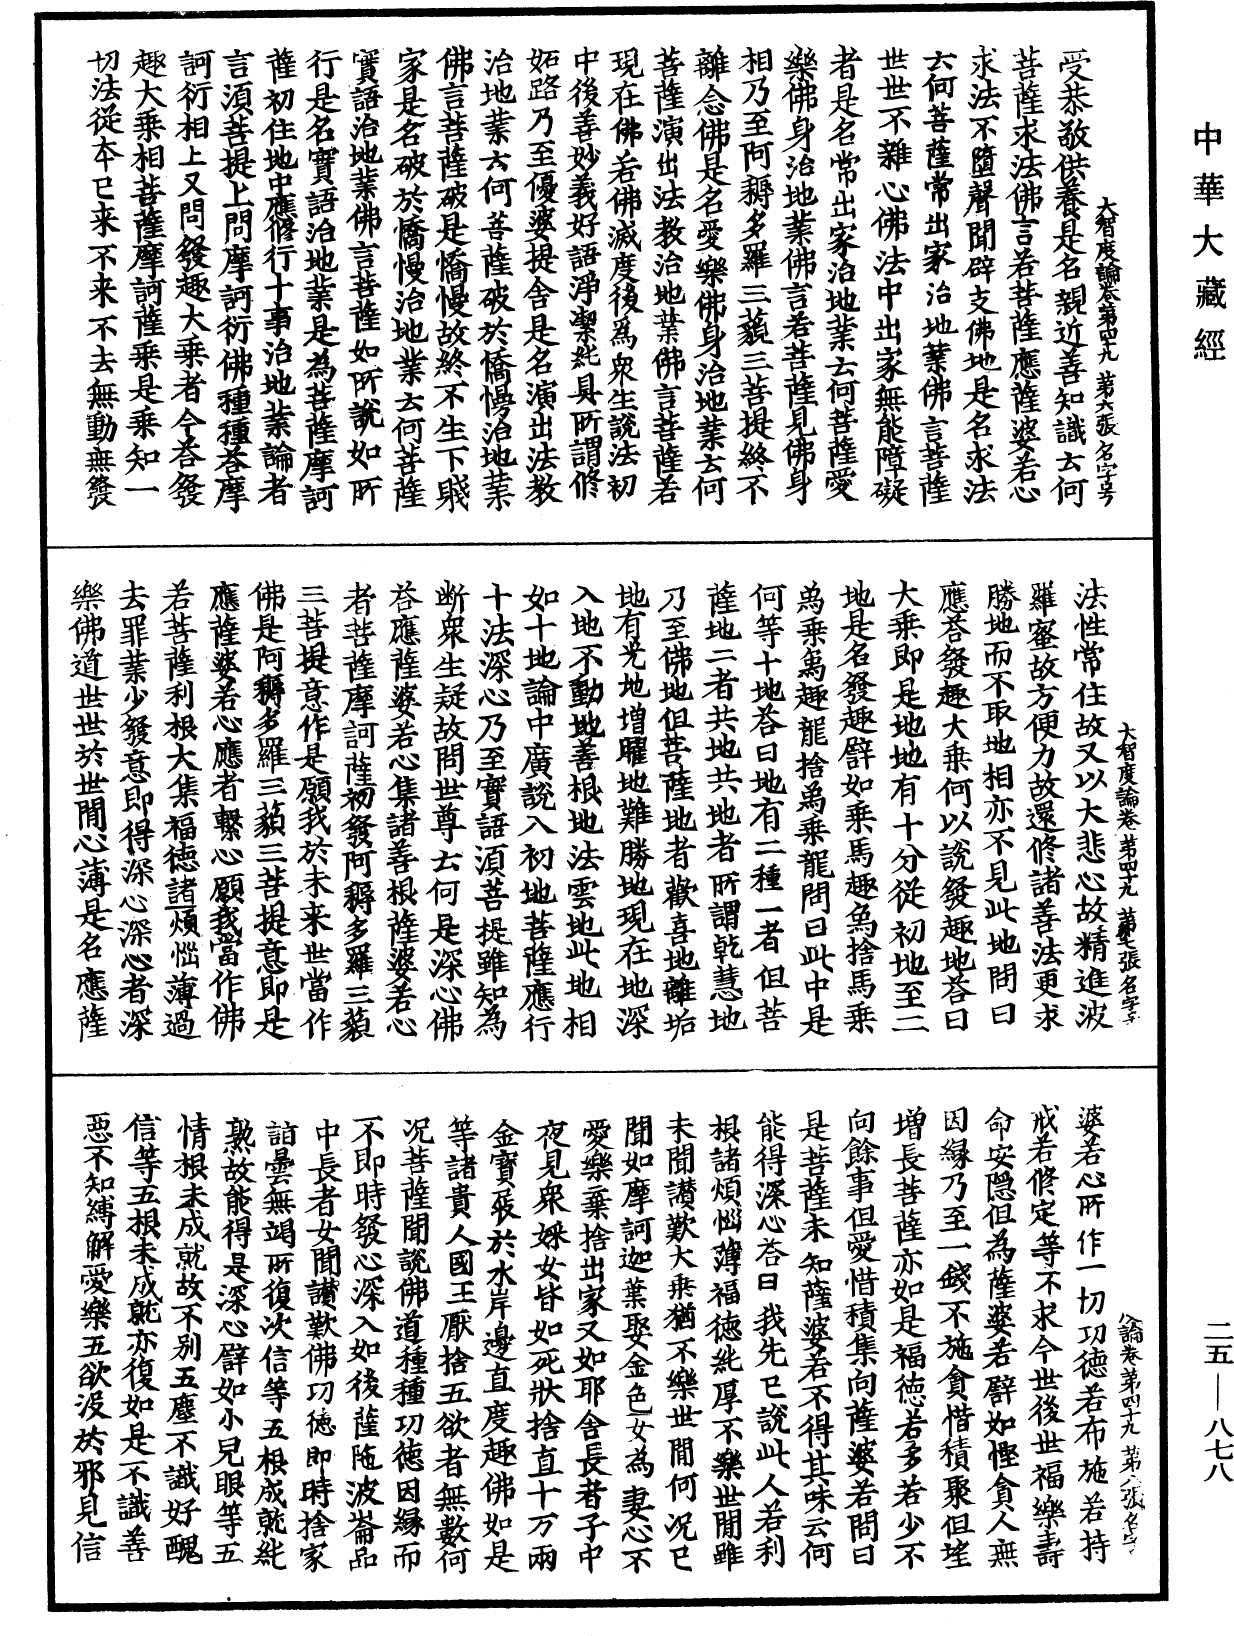 中華大藏經
大智度論卷第四十九 第六張 名字号
受恭敬供養是名親近善知識云何
菩薩求法佛言若菩薩應薩婆若心
求法不墮聲聞辟支佛地是名求法
云何菩薩常出家治地業佛言菩薩
世世不雜心佛法中出家無能障礙
者是名常出家治地業云何菩薩愛
樂佛身治地業佛言若菩薩見佛身
相乃至阿耨多羅三藐三菩提終不
離念佛是名愛樂佛身治地業云何
菩薩演出法教治地業佛言菩薩若
現在佛若佛滅度後為眾生說法初
中後善妙義好語淨潔純具所謂修
妬路乃至優婆提舍是名演出法教
治地業云何菩薩破於憍慢治地業
佛言菩薩破是憍慢故終不生下賤
家是名破於憍慢治地業云何菩薩
實語治地業佛言菩薩如所說如所
行是名實語治地業是為菩薩摩訶
薩初住地中應修行十事治地業論者
言須菩提上問摩訶衍佛種種荅摩
訶衍相上又問發趣大乘者今荅發
趣大乘相菩薩摩訶薩乘是乘知一
切法從本已来不来不去無動無發
大智度論卷第四十九 第七張 名字号
法性常住故又以大悲心故精進波
羅蜜故方便力故還修諸善法更求
勝地而不取地相亦不見此地問曰
應荅發趣大乘何以說發趣地荅曰
大乘即是地地有十分從初地至二
地是名發趣譬如乘馬趣象捨馬乘
象乘象趣龍捨象乘龍問曰此中是
何等十地荅曰地有二種一者但菩
薩地二者共地共地者所謂乾慧地
乃至佛地但菩薩地者歡喜地離垢
地有光地增曜地難勝地現在地深
入地不動地善根地法雲地此地相
如十地論中廣說入初地菩薩應行
十法深心乃至實語須菩提雖知為
断眾生疑故問世尊云何是深心佛
荅應薩婆若心集諸善根薩婆若心
者菩薩摩訶薩初發阿耨多羅三藐
三菩提意作是願我於未来世當作
佛是阿耨多羅三藐三菩提意即是
應薩婆若心應者繫心願我當作佛
若菩薩利根大集福德諸煩惱薄過
去罪業少發意即得深心深心者深
樂佛道世世於世間心薄是名應薩
論卷第四十九 第八張 名字
婆若心所作一切功德若布施若持
戒若修定等不求今世後世福樂壽
命安隱但為薩婆若譬如慳貪人無
因緣乃至一錢不施貪惜積聚但望
增長菩薩亦如是福德若多若少不
向餘事但愛惜積集向薩婆若問曰
是菩薩未知薩婆若不得其味云何
能得深心荅曰我先已說此人若利
根諸煩惱薄福德純厚不樂世間雖
未聞讃歎大乘猶不樂世間何況已
聞如摩訶迦葉娶金色女為妻心不
愛樂棄捨出家又如耶舍長者子中
夜見眾婇女皆如死狀捨直十万兩
金寶屐於水岸邊直度趣佛如是
等諸貴人國王厭捨五欲者無數何
況菩薩聞說佛道種種功德因緣而
不即時發心深入如後薩陁波崙品
中長者女聞讃歎佛功德即時捨家
詣曇無竭所復次信等五根成就純
熟故能得是深心譬如小兒眼等五
情根未成就故不別五塵不識好醜
信等五根未成就亦復如是不識善
惡不知縛解愛樂五欲没於邪見信
二五—八七八